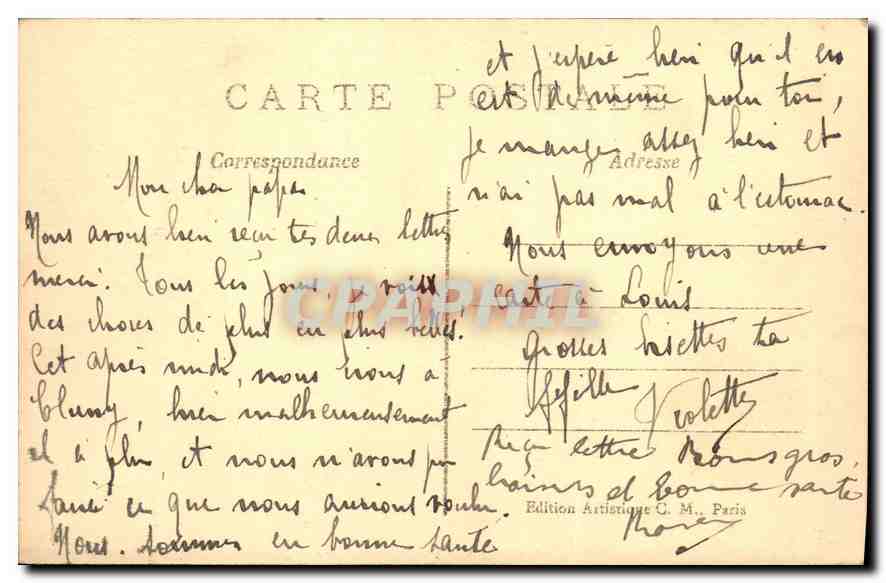 CARTE POSTALE
Correspondance
Adresse
Mon cher papa
Nous avons bien reçu tes deux lettres
merci. Tous les jours, je vois
des choses de plus en plus belles.
Cet après midi, nous irons à
Cluny, bien malheureusement
il a plu, et nous n'avons pu
faire ce que nous aurions voulu.
Nous sommes en bonne santé
et j'espère bien qu'il en
est de même pour toi,
je mange assez bien et
n'ai pas mal à l'estomac.
Nous envoyons une
carte à Louis
Grosses bisettes ta
fifille Violette
Reçu lettre gros
baisers et bonne santé
Edition Artistique C. M., Paris
CPAPHIL